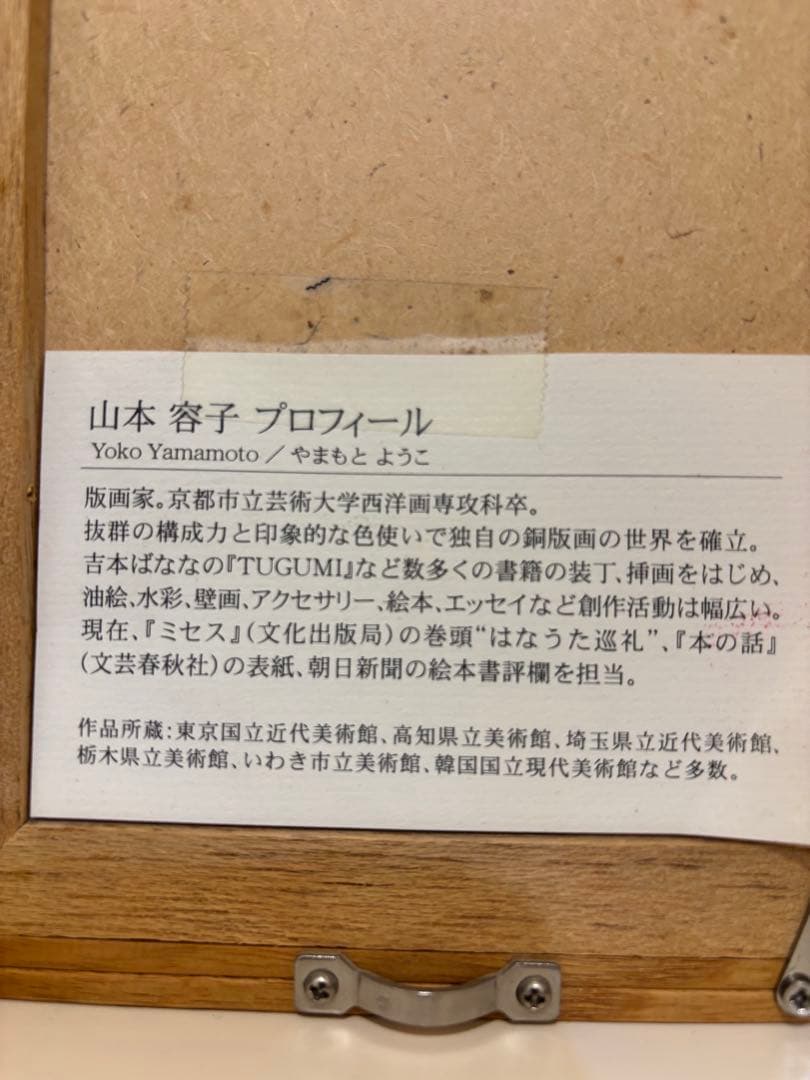 山本 容子 プロフィール
Yoko Yamamoto／やまもと ようこ
版画家。京都市立芸術大学西洋画専攻科卒。
抜群の構成力と印象的な色使いで独自の銅版画の世界を確立。
吉本ばななの『TUGUMI』など数多くの書籍の装丁、挿画をはじめ、
油絵、水彩、壁画、アクセサリー、絵本、エッセイなど創作活動は幅広い。
現在、『ミセス』(文化出版局)の巻頭“はなうた巡礼”、『本の話』
(文芸春秋社)の表紙、朝日新聞の絵本書評欄を担当。
作品所蔵：東京国立近代美術館、高知県立美術館、埼玉県立近代美術館、
栃木県立美術館、いわき市立美術館、韓国国立現代美術館など多数。